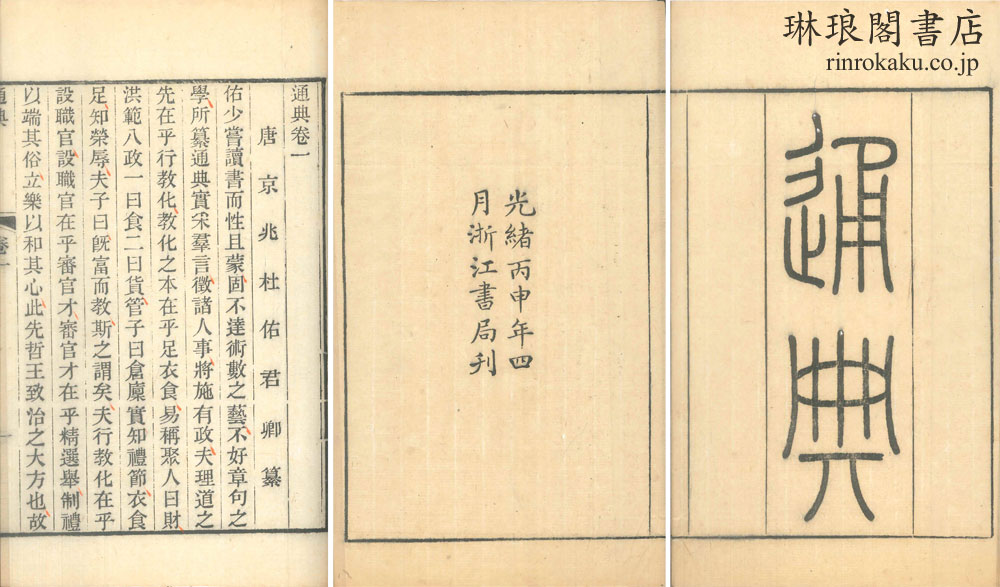 琳琅閣書店
rinrokaku.co.jp
通典
光緒丙申年四
月浙江書局刊
通典卷一
唐京兆杜佑君卿纂
佑少嘗讀書而性且蒙固不達術數之藝不好章句之
學所纂通典實采羣言徵諸人事將施有政夫理道之
先在乎行教化教化之本在乎足衣食易稱聚人曰財
洪範八政一曰食二曰貨管子曰倉廩實知禮節衣食
足知榮辱夫子曰旣富而教斯之謂矣夫行教化在乎
設職官設職官在乎審官才審官才在乎精選舉制禮
以端其俗立樂以和其心此先哲王致治之大方也故
通典
卷一